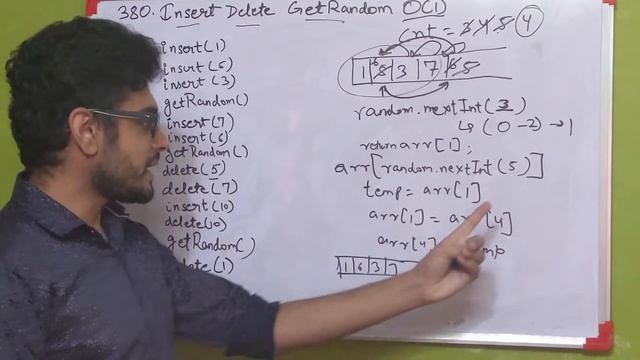 380. Insert Delete GetRandom O(1)
insert(1)
insert(5)
insert(3)
getRandom()
insert(7)
insert(6)
getRandom()
delete(5)
delete(7)
insert(10)
delete(10)
getRandom()
delete(1)
cnt = 3 4 5 4
1 6 5 3 7 6 5
random.nextInt(3)
↳ (0-2) → 1
return arr[1];
arr[random.nextInt(5)]
temp = arr[1]
arr[1] = arr[4]
arr[4]
1 6 3 7